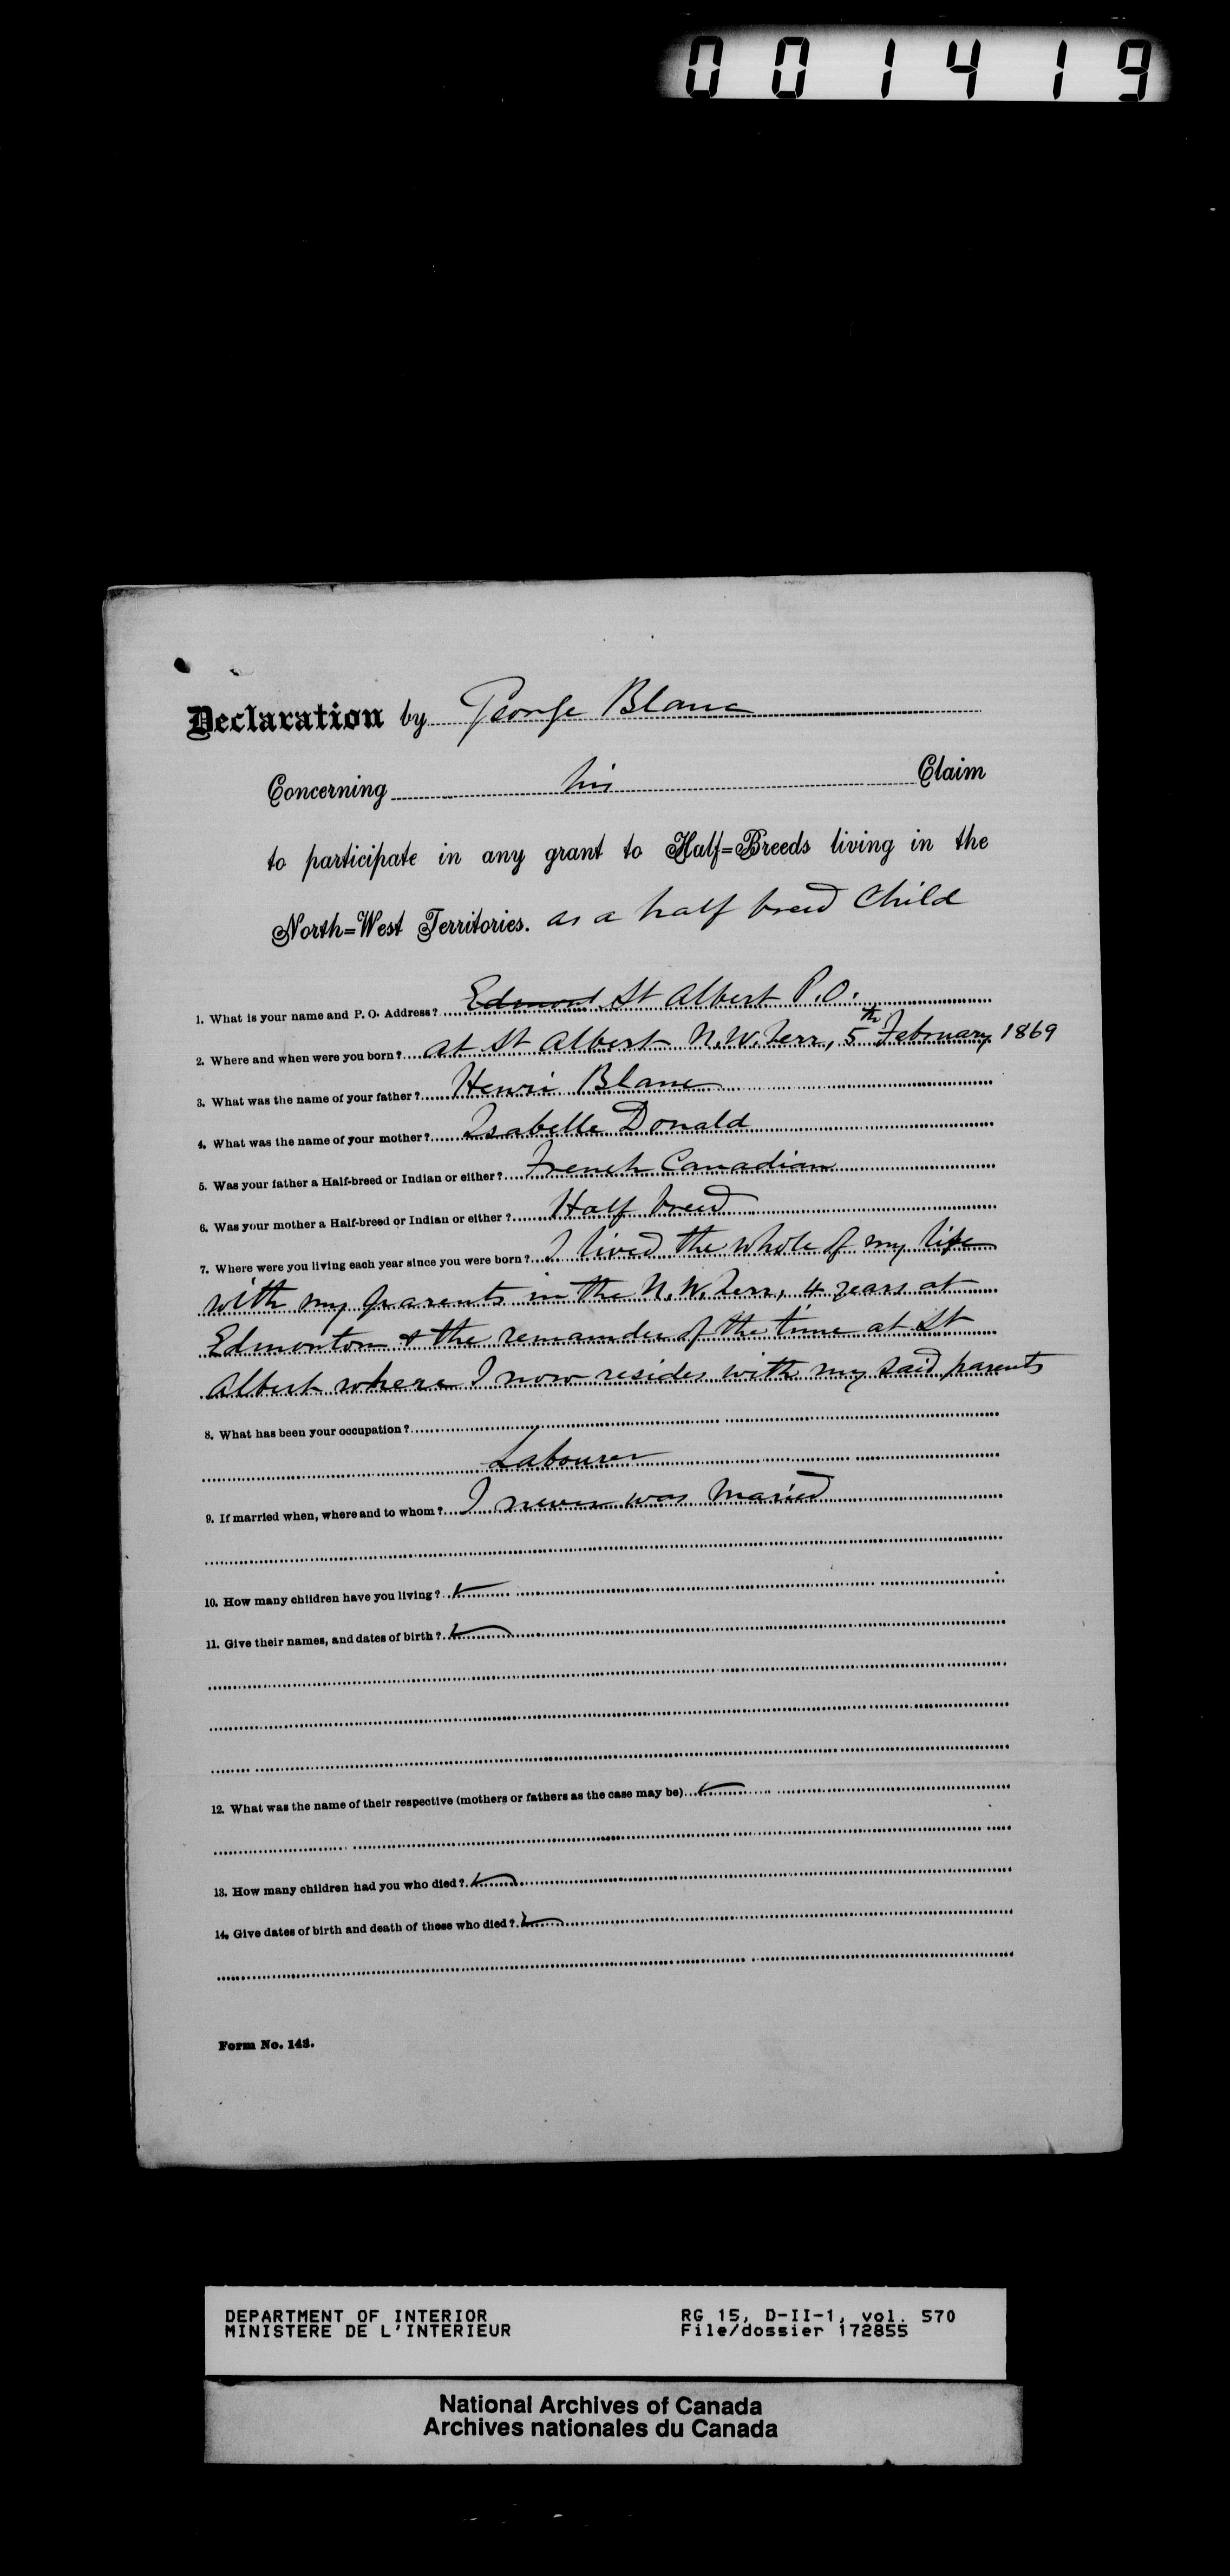 001419
Declaration by George Blanc
Concerning his Claim
to participate in any grant to Half=Breeds living in the
North=West Territories. as a half breed Child
1. What is your name and P. O. Address? Edmont St Albert P.O.
2. Where and when were you born? at St Albert N.W. Terr, 5th February 1869
3. What was the name of your father? Henri Blanc
4. What was the name of your mother? Isabelle Donald
5. Was your father a Half-breed or Indian or either? French Canadian
6. Was your mother a Half-breed or Indian or either? Half breed
7. Where were you living each year since you were born? I lived the whole of my life
with my parents in the N.W. Terr, 4 years at
Edmonton & the remainder of the time at St
Albert where I now resides with my said parents
8. What has been your occupation?
Labourer
9. If married when, where and to whom? I never was Maried
10. How many children have you living?
11. Give their names, and dates of birth?
12. What was the name of their respective (mothers or fathers as the case may be)
13. How many children had you who died?
14. Give dates of birth and death of those who died?
Form No. 143.
DEPARTMENT OF INTERIOR RG 15, D-II-1, vol. 570
MINISTERE DE L'INTERIEUR File/dossier 172855
National Archives of Canada
Archives nationales du Canada